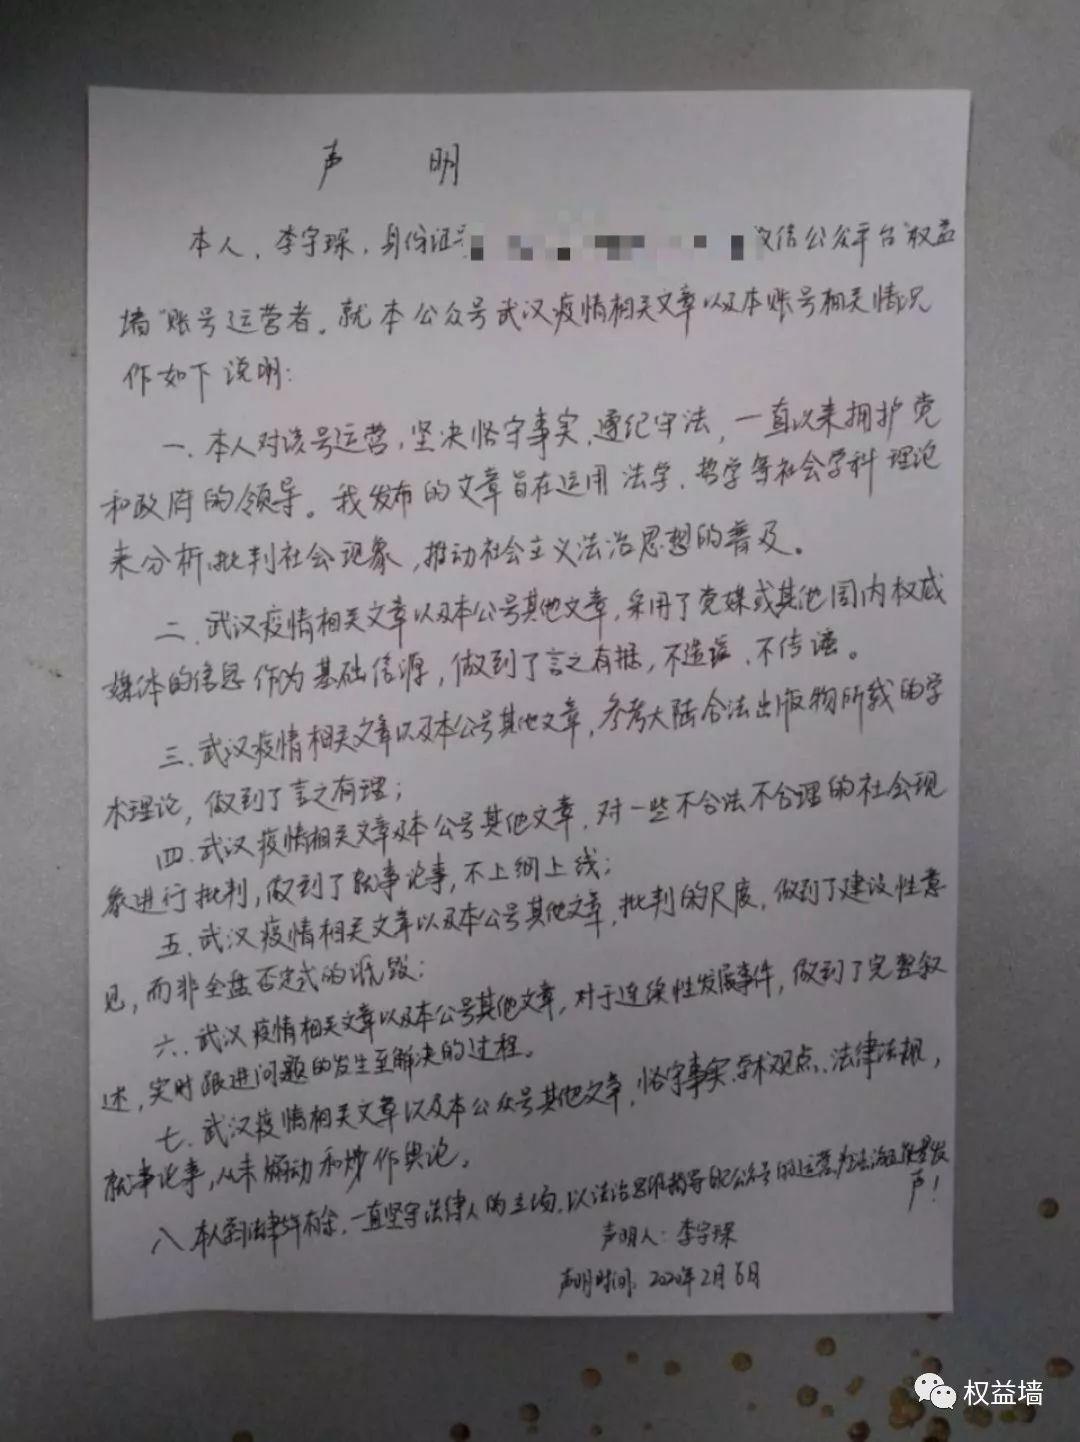 声 明
本人，李宇琛，身份证号 微信公众平台“权益
墙”账号运营者。就本公众号武汉疫情相关文章以及本账号相关情况
作如下说明：
一、本人对该号运营，坚决恪守事实，遵纪守法，一直以来拥护党
和政府的领导。我发布的文章旨在运用法学、哲学等社会学科理论
来分析、批判社会现象，推动社会主义法治思想的普及。
二、武汉疫情相关文章以及本公号其他文章，采用了党媒或其他国内权威
媒体的信息作为基础信源，做到了言之有据，不造谣、不传谣。
三、武汉疫情相关文章以及本公号其他文章，参考大陆合法出版物所载的学
术理论，做到了言之有理；
四、武汉疫情相关文章及本公号其他文章，对一些不合法不合理的社会现
象进行批判，做到了就事论事，不上纲上线；
五、武汉疫情相关文章以及本公号其他文章，批判的尺度，做到了建设性意
见，而非全盘否定式的诋毁；
六、武汉疫情相关文章以及本公号其他文章，对于连续性发展事件，做到了完整叙
述，实时跟进问题的发生至解决的过程。
七、武汉疫情相关文章以及本公众号其他文章，恪守事实、学术观点、法律法规，
就事论事，从未煽动和炒作舆论。
八、本人学习法律5年有余，一直坚守法律人的立场，以法治思维指导公众号的运营，为法治正能量发
声！
声明人：李宇琛
声明时间：2020年2月6日
权益墙